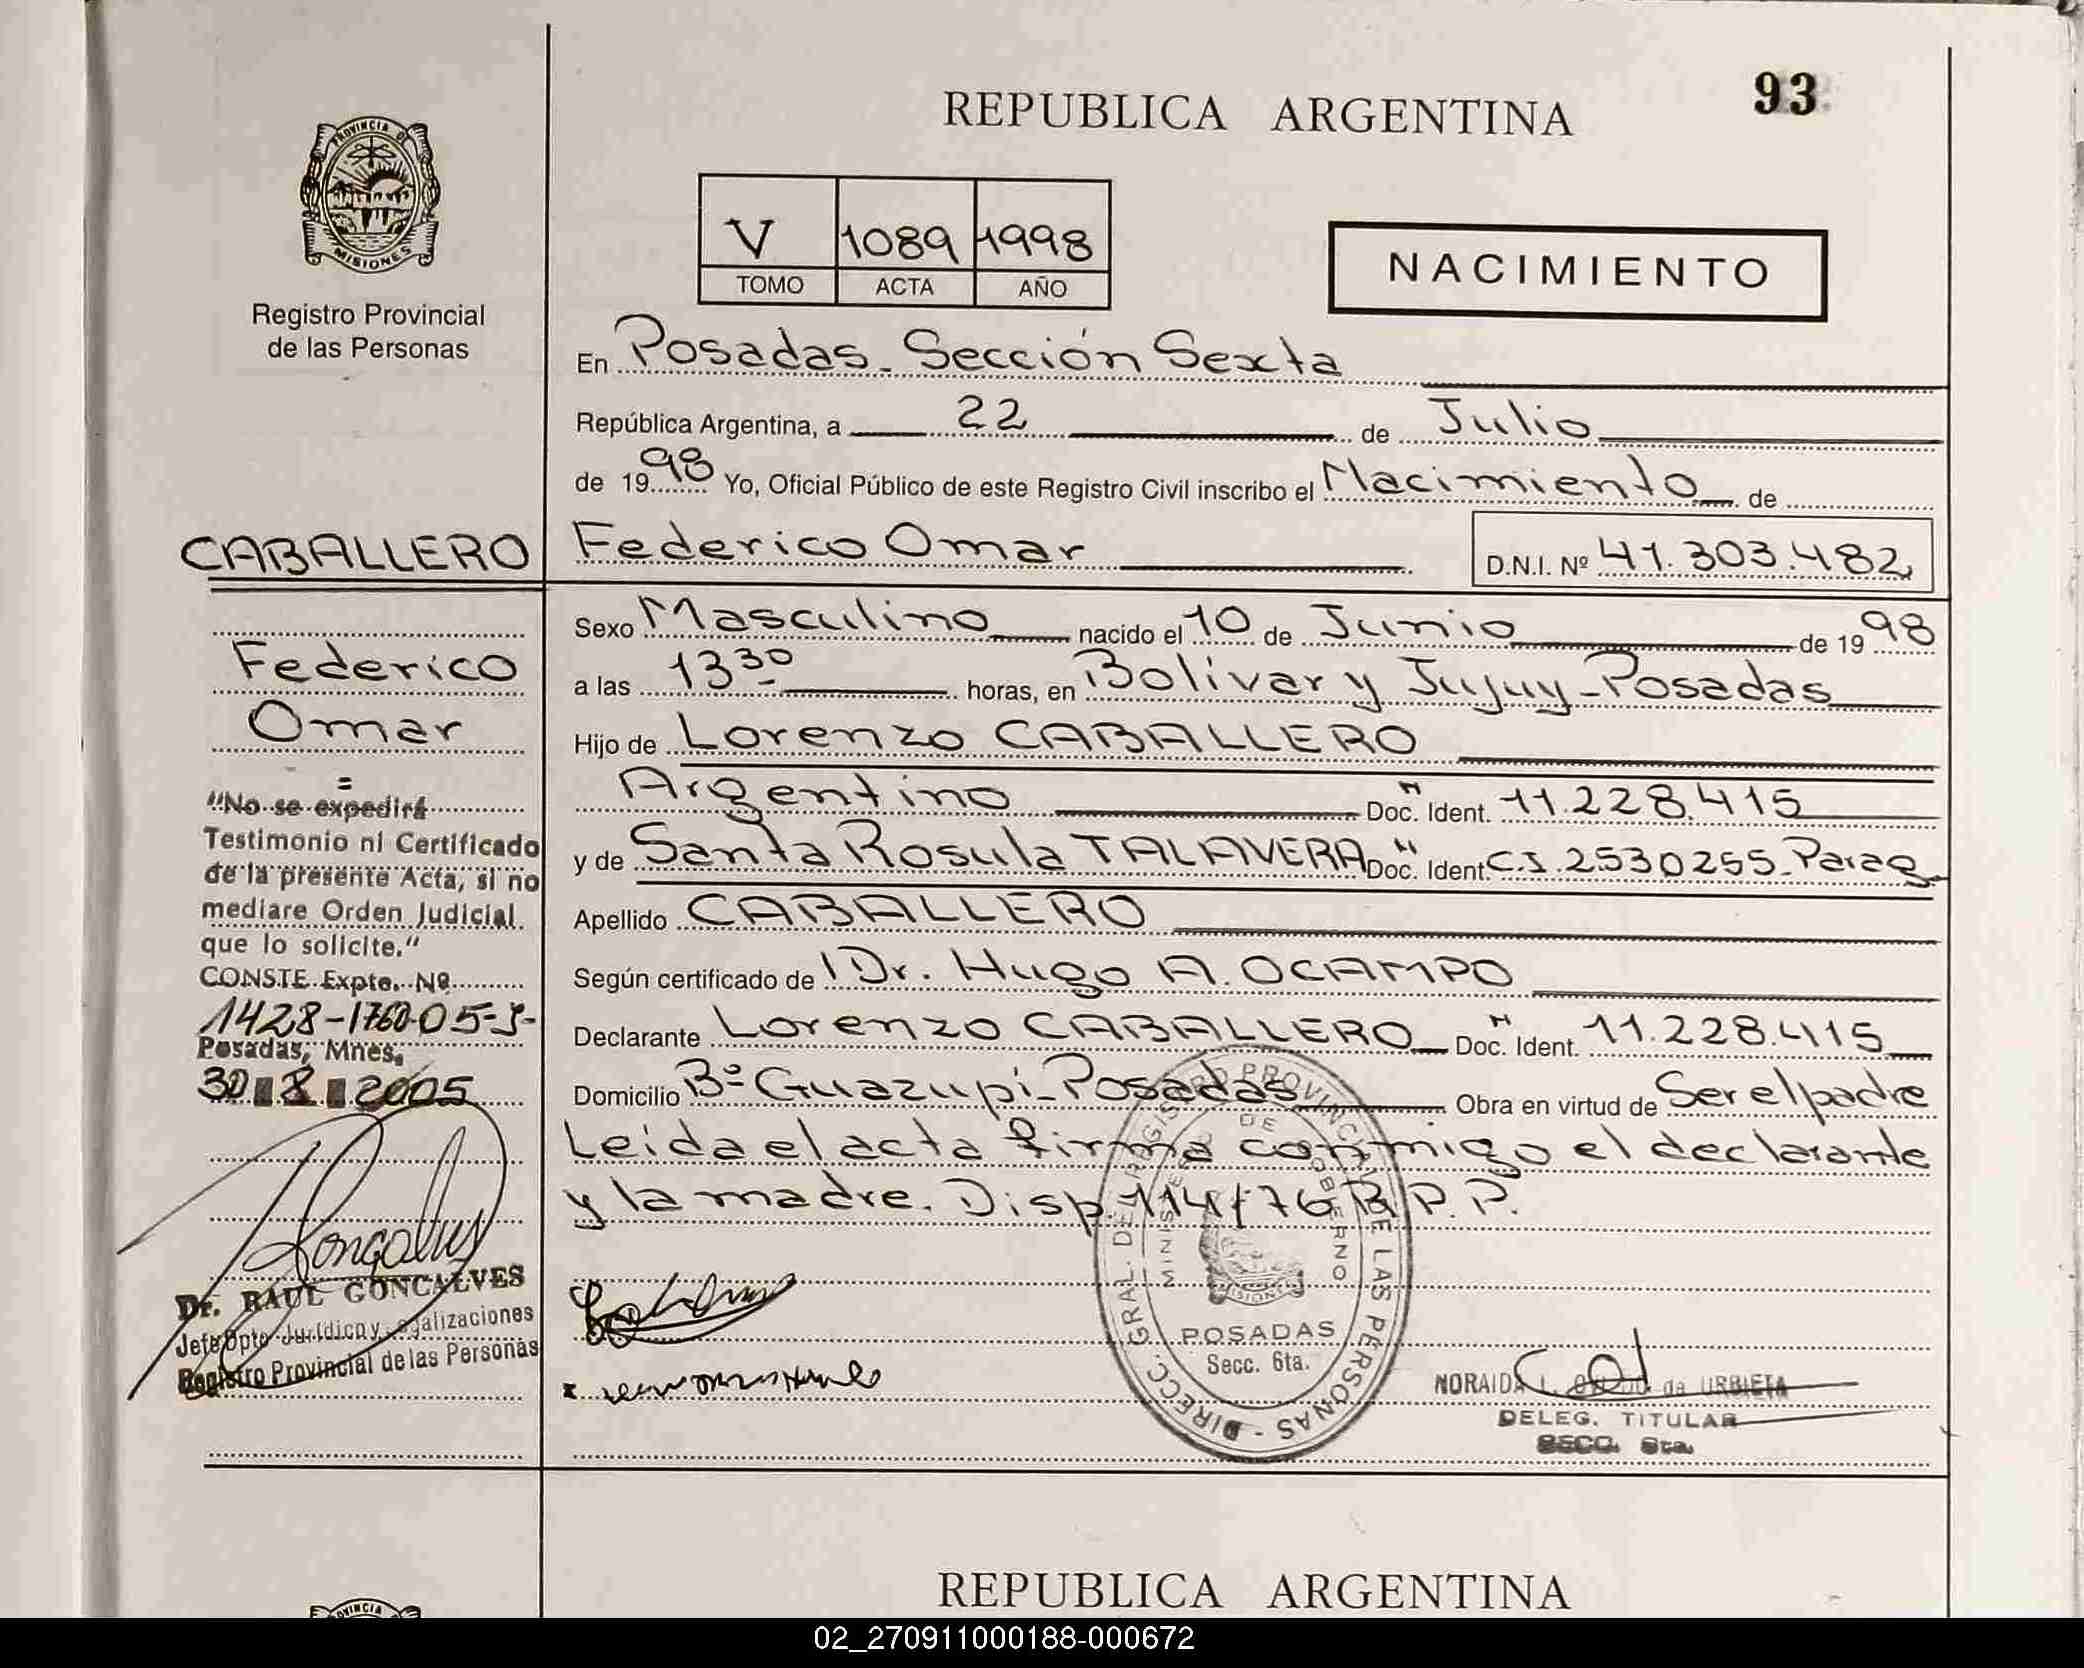 93
REPUBLICA ARGENTINA
PROVINCIA DE
MISIONES
Registro Provincial
de las Personas
V 1089 1998
TOMO ACTA AÑO
NACIMIENTO
En Posadas - Sección Sexta
República Argentina, a 22 de Julio
de 1998 Yo, Oficial Público de este Registro Civil inscribo el Nacimiento de
Federico Omar D.N.I. Nº 41.303.482
Sexo Masculino nacido el 10 de Junio de 1998
a las 13 30 horas, en Bolívar y Jujuy - Posadas
Hijo de Lorenzo CABALLERO
Argentino Doc. Ident. 11.228.415
y de Santa Rosula TALAVERA Doc. Ident. C.I. 2530255 - Parag
Apellido CABALLERO
Según certificado de Dr. Hugo A. OCAMPO
Declarante Lorenzo CABALLERO Doc. Ident. 11.228.415
Domicilio Bº Guazupí - Posadas Obra en virtud de Ser el padre
Leida el acta firma conmigo el declarante
y la madre. Disp. 114/76 R.P.P.
CABALLERO
Federico
Omar
=
"No se expedirá
Testimonio ni Certificado
de la presente Acta, si no
mediare Orden Judicial
que lo solicite."
CONSTE Expte. Nº
1428-1760-05-J-
Posadas, Mnes,
30 8 2005
Dr. RAUL GONCALVES
Jefe Dpto Jurídico y Legalizaciones
Registro Provincial de las Personas
DIRECC. GRAL. DEL REGISTRO PROVINCIAL DE LAS PERSONAS
MINISTERIO DE GOBIERNO
MISIONES
POSADAS
Secc. 6ta.
NORAIDA de URBIETA
DELEG. TITULAR
SECC. 6ta.
PROVINCIA
REPUBLICA ARGENTINA
02_270911000188-000672